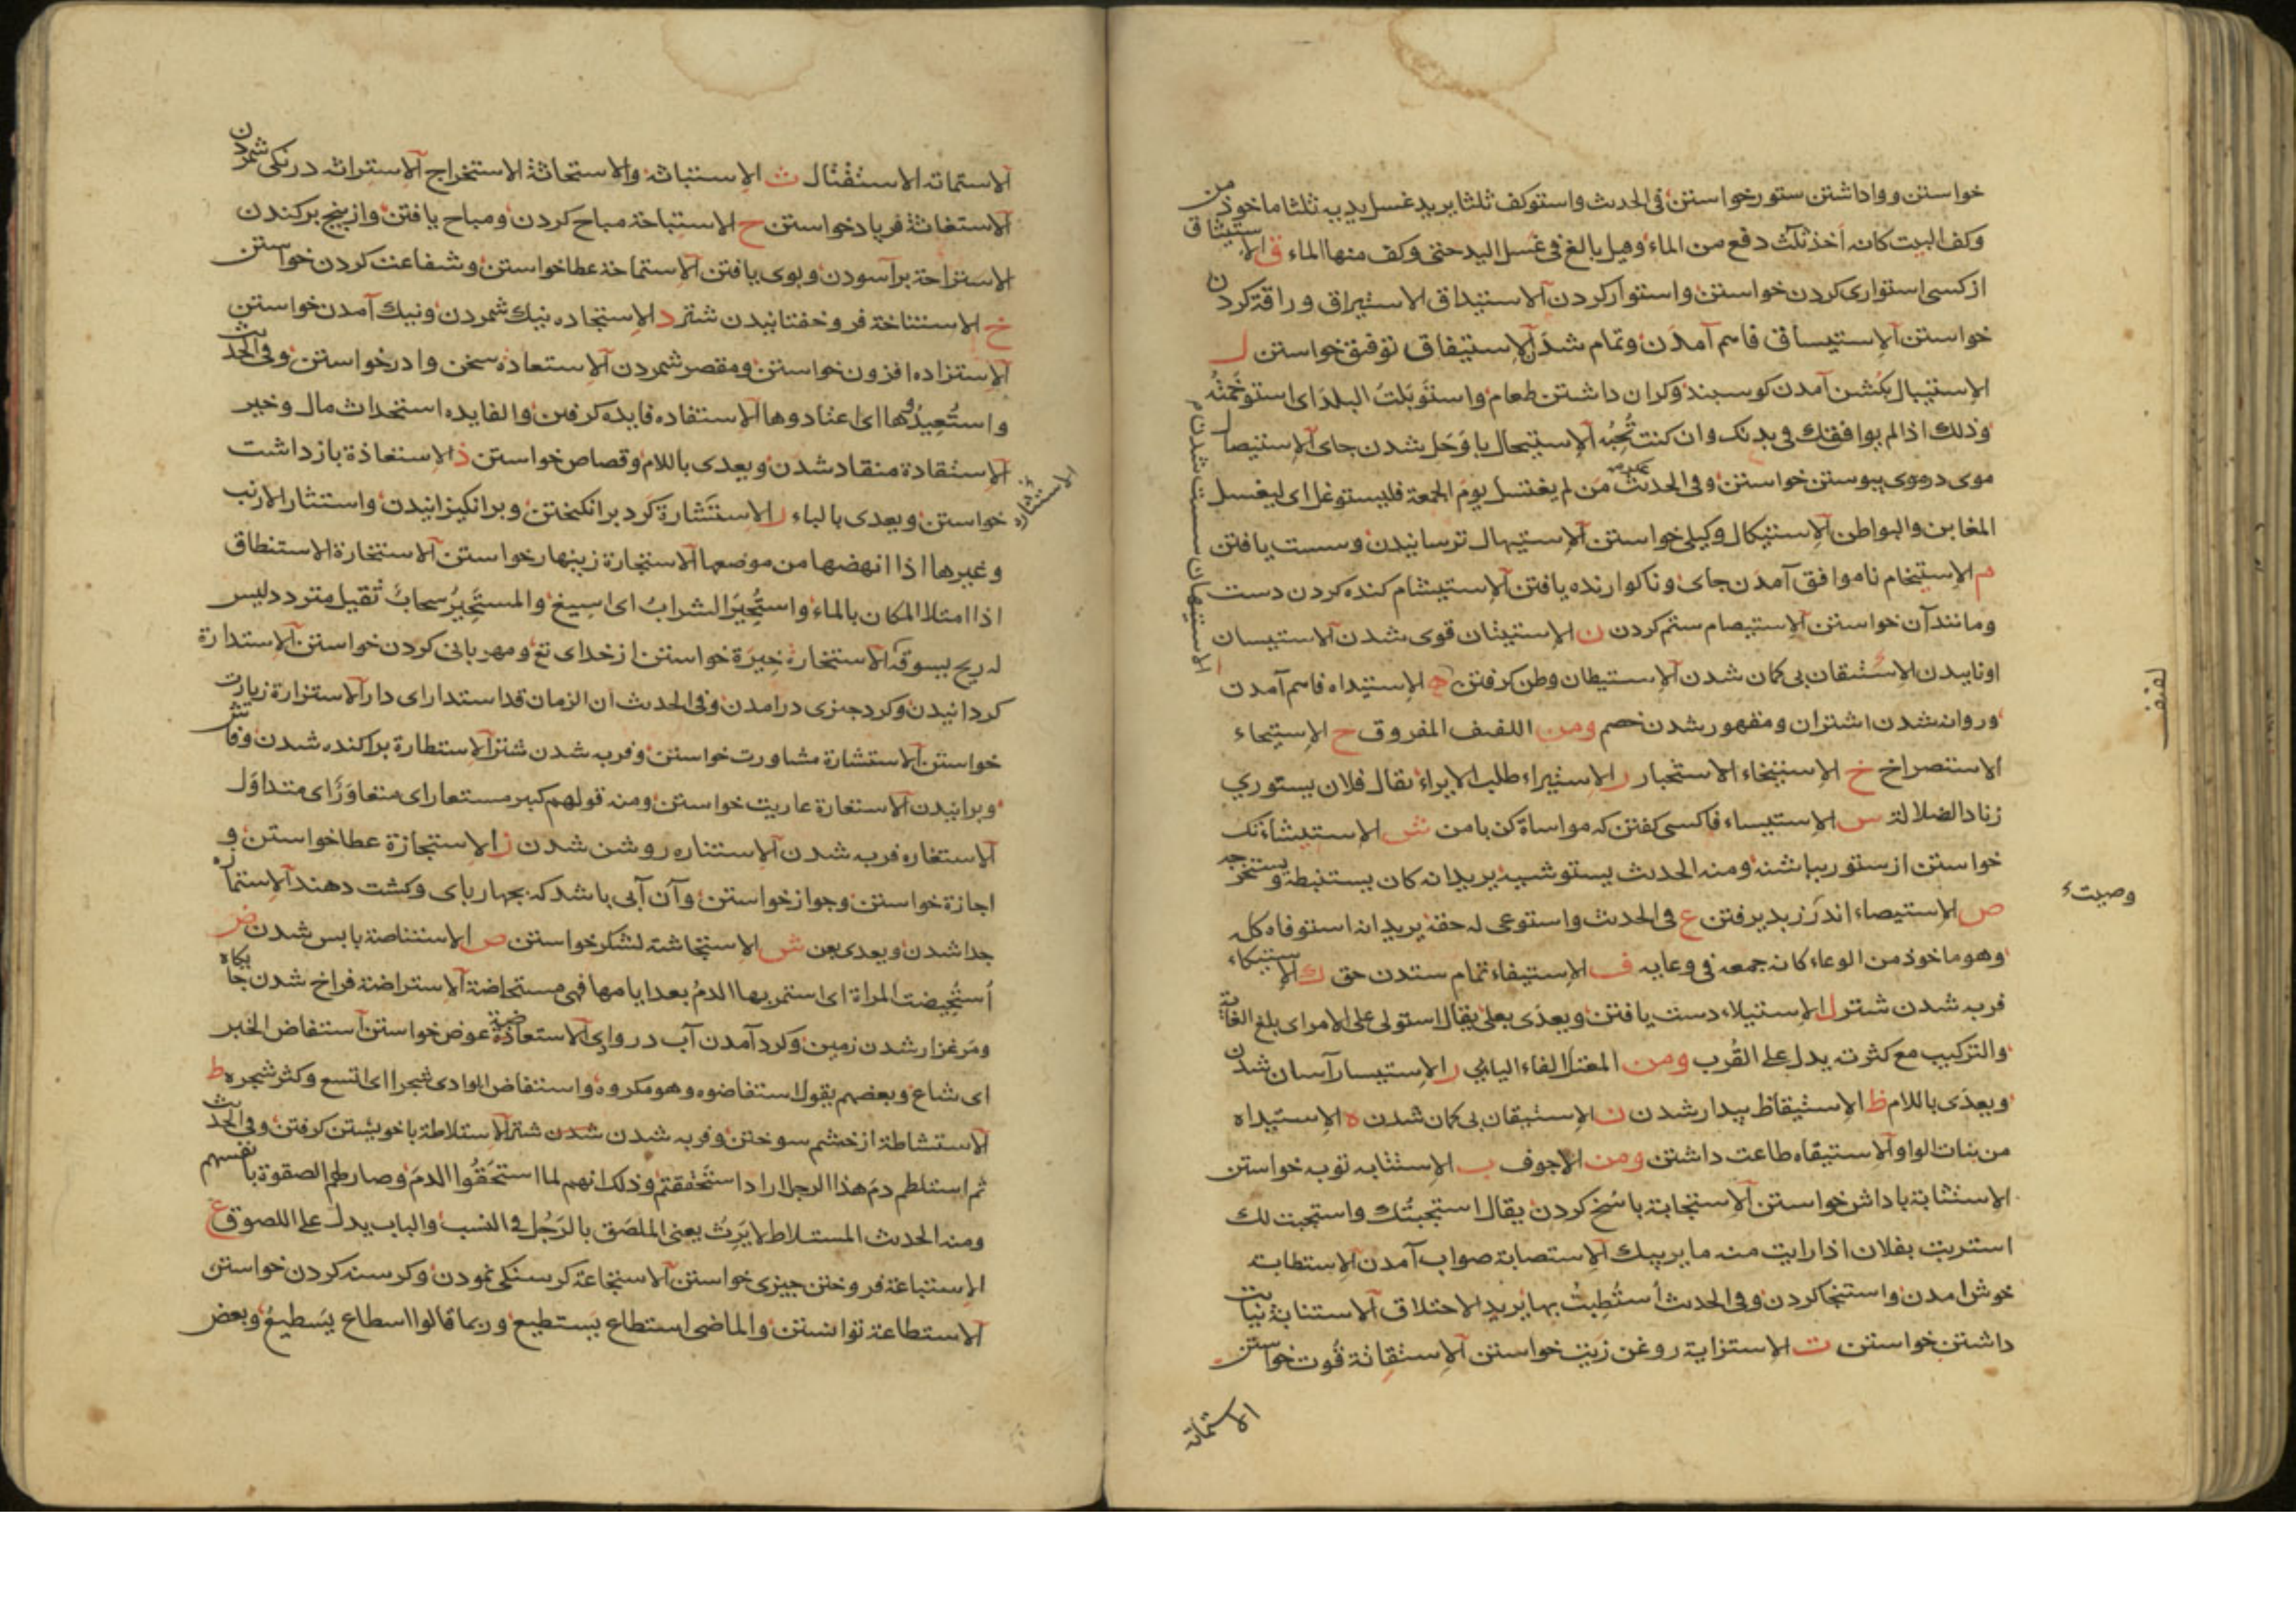 خواستن وواداشتن ستور خواستن فى الحديث واستوكف ثلثا يريد غسل يديه ثلثا ماخوذ من
وكف البيت كانه اخذ ثلث دفع من الماء وقيل بالغ فى غسل اليد حتى وكف منها الماء ق الاستيثاق
از كسى استوارى كردن خواستن واستوار كردن الاستيداق الاستيراق وراقة كردن
خواستن الاستيساق فاهم آمدن وتمام شدن الاستيفاق توفيق خواستن ل
الاستيبال بكشن آمدن كوسبند وكران داشتن طعام واستوبلت البلد اى استوخمته
وذلك اذا لم يوافقك فى بدنك وان كنت تحبه الاستيحال با وحل شدن جاى الاستيصال
موى در موى پيوستن خواستن وفى الحديث من لم يغتسل يوم الجمعة فليستوغل اى ليغسل
المغابن والبواطن الاستيكال وكيلى خواستن الاستيهال ترسانيدن وسست يافتن
م الاستيخام ناموافق آمدن جاى وناكوارنده يافتن الاستيشام كنده كردن دست
ومانند آن خواستن الاستيصام ستم كردن ن الاستيثان قوى شدن الاستيسان
اونابيدن الاستيقان بى كمان شدن الاستيطان وطن كرفتن ه الاستيداه فاهم آمدن
وروانه شدن اشتران ومقهور شدن خصم ومن اللفيف المفروق ح الاستيحاء
الاستصراخ خ الاستيخاء الاستخبار ر الاستيراء طلب الايراء يقال فلان يستورى
زناد الضلالة س الاستيساء فاكسى كفتن كه مواساة كن بامن ش الاستيشاء تك
خواستن از ستور بپاشنه ومنه الحديث يستوشيه يريد انه كان يستنبطه ويستخرجه
ص الاستيصاء اندرز بديرفتن ع فى الحديث واستوعى له حقه يريد انه استوفاه كله
وهو ماخوذ من الوعاء كانه جمعه فى وعايه ف الاستيفاء تمام ستدن حق ك الاستيكاء
فربه شدن شتر ل الاستيلاء دست يافتن ويعدى بعلى يقال استولى على الامر اى بلغ الغاية
والتركيب مع كثرته يدل على القرب ومن المعتل الفاء اليائى ر الاستيسار آسان شدن
ويعدى باللام ظ الاستيقاظ بيدار شدن ن الاستيقان بى كمان شدن ه الاستيداه
من بنات الواو الاستيقاه طاعت داشتن ومن الاجوف ب الاستتابه توبه خواستن
الاستثابة باداش خواستن الاستجابة باسخ كردن يقال استجبتك واستجبت لك
استربت بفلان اذا رايت منه ما يريبك الاستصابة صواب آمدن الاستطابة
خوش امدن واستنجا كردن وفى الحديث استطبت بها يريد الاحتلاق الاستنابة نيابت
داشتن خواستن ت الاستزاية روغن زيت خواستن الاستقاتة قوت خواستن
الاستماتة
الاستيهان سست شدن
لفيف
وصيت
الاستماته الاستقتال ث الاستباثه والاستحاثة الاستخراج الاستراثه درنكى شمردن
الاستغاثة فرياد خواستن ح الاستباحة مباح كردن ومباح يافتن واز بيخ بركندن
الاستراحة برآسودن وبوى يافتن الاستماحة عطا خواستن وشفاعت كردن خواستن
خ الاستناخة فرو خفتانيدن شتر د الاستجاده نيك شمردن ونيك آمدن خواستن
الاستزاده افزون خواستن ومقصر شمردن الاستعاده سخن وا در خواستن وفى الحديث
واستعيدوها اى اعتادوها الاستفاده فايده كرفتن والفايده استحداث مال وخير
الاستقادة منقاد شدن ويعدى باللام وقصاص خواستن ذ الاستعاذة باز داشت
خواستن ويعدى بالباء ر الاستثارة كرد برانكيختن وبرانكيزانيدن واستثار الارنب
وغيرها اذا انهضها من موضعها الاستجارة زينهار خواستن الاستحارة الاستنطاق
اذا امتلا المكان بالماء واستحير الشراب اى اسيغ والمستحير سحاب ثقيل متردد ليس
له ريح يسوقه الاستخارة خيرة خواستن از خداى تع ومهربانى كردن خواستن الاستدارة
كردانيدن وكرد چيزى درامدن وفى الحديث ان الزمان قد استدار اى دار الاستزارة زيارت
خواستن الاستشارة مشاورت خواستن وفربه شدن شتر الاستطارة براكنده شدن وفاش
وبرانيدن الاستعارة عاريت خواستن ومنه قولهم كبر مستعار اى متعاور اى متداول
الاستغاره فربه شدن الاستناره روشن شدن ز الاستجازة عطا خواستن و
اجازة خواستن وجواز خواستن وآن آبى باشد كه بچهارپاى وكشت دهند الاستمازه
جدا شدن ويعدى بعن ش الاستجاشة لشكر خواستن ص الاستناصة بابس شدن ض
استحيضت المراة اى استمر بها الدم بعد ايامها فهى مستحاضة الاستراضة فراخ شدن جايكاه
ومرغزار شدن زمين وكرد آمدن آب در واى الاستعاضة عوض خواستن استفاض الخبر
اى شاع وبعضهم يقول استفاضوه وهو مكروه واستفاض الوادى شجرا اى اتسع وكثر شجره ط
الاستشاطة از خشم سوختن وفربه شدن شدن شتر الاستلاطة باخويشتن كرفتن وفى الحديث
ثم استلطتم دم هذا الرجل اراد استحققتم وذلك انهم لما استحقوا الدم وصار لهم الصقوة بانفسهم
ومنه الحديث المستلاط لا يرث يعنى الملصق بالرجل فى النسب والباب يدل على اللصوق ع
الاستباعة فروختن چيزى خواستن الاستجاعة كرسنكى نمودن وكرسنه كردن خواستن
الاستطاعة توانستن والماضى استطاع يستطيع وربما قالوا اسطاع يسطيع وبعض
الاستشاره